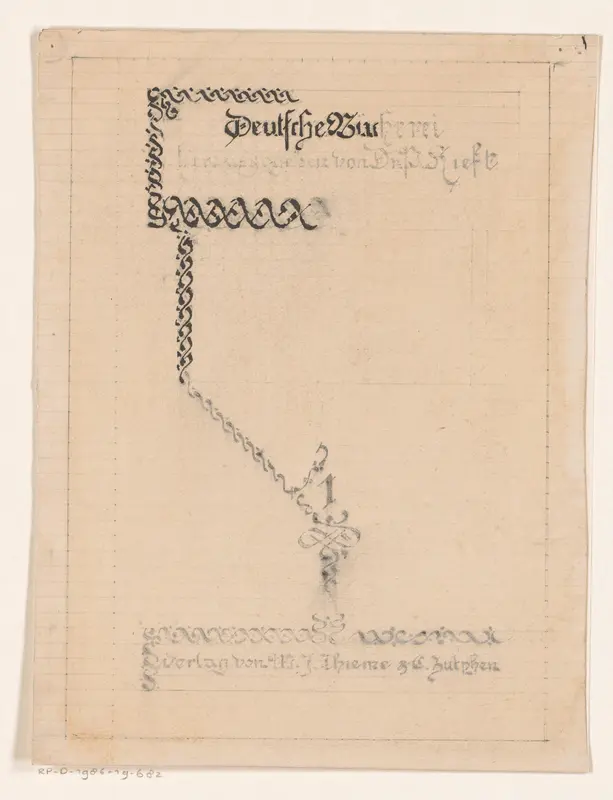 Deutsche Bücherei
herausgegeben von Dr. P. Kieft
1
Verlag von W. J. Thieme & C. Zutphen
RP-D-1986-19-682